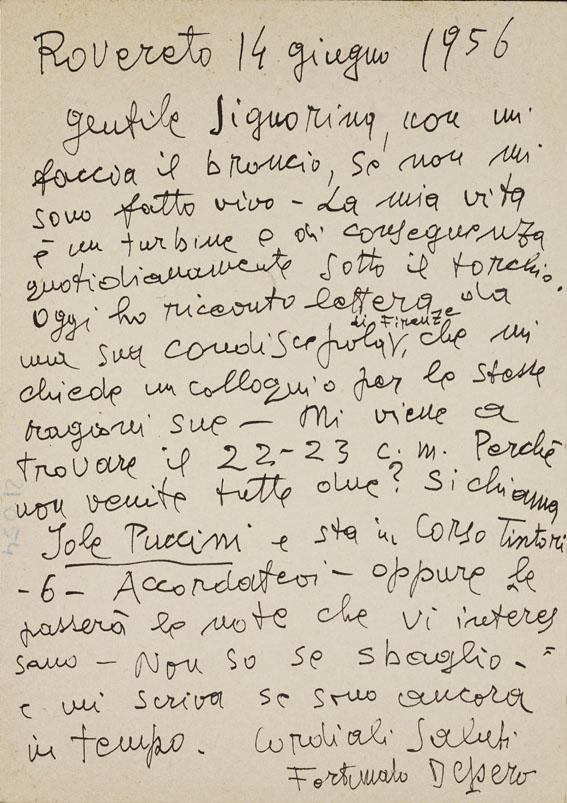 Rovereto 14 giugno 1956
gentile Signorina, non mi
faccia il broncio, se non mi
sono fatto vivo - La mia vita
è un turbine e di conseguenza
quotidianamente sotto il torchio.
Oggi ho ricevuto lettera da
di Firenze
una sua condiscepola, che mi
chiede un colloquio per le stesse
ragioni sue - Mi viene a
trovare il 22-23 c.m. Perchè
non venite tutte due? Si chiama
Jole Puccini e sta in Corso Tintori
-6- Accordatevi - oppure le
passerà le note che vi interes
sano - Non so se sbaglio. =
e mi scriva se sono ancora
in tempo. Cordiali Saluti
Fortunato Depero